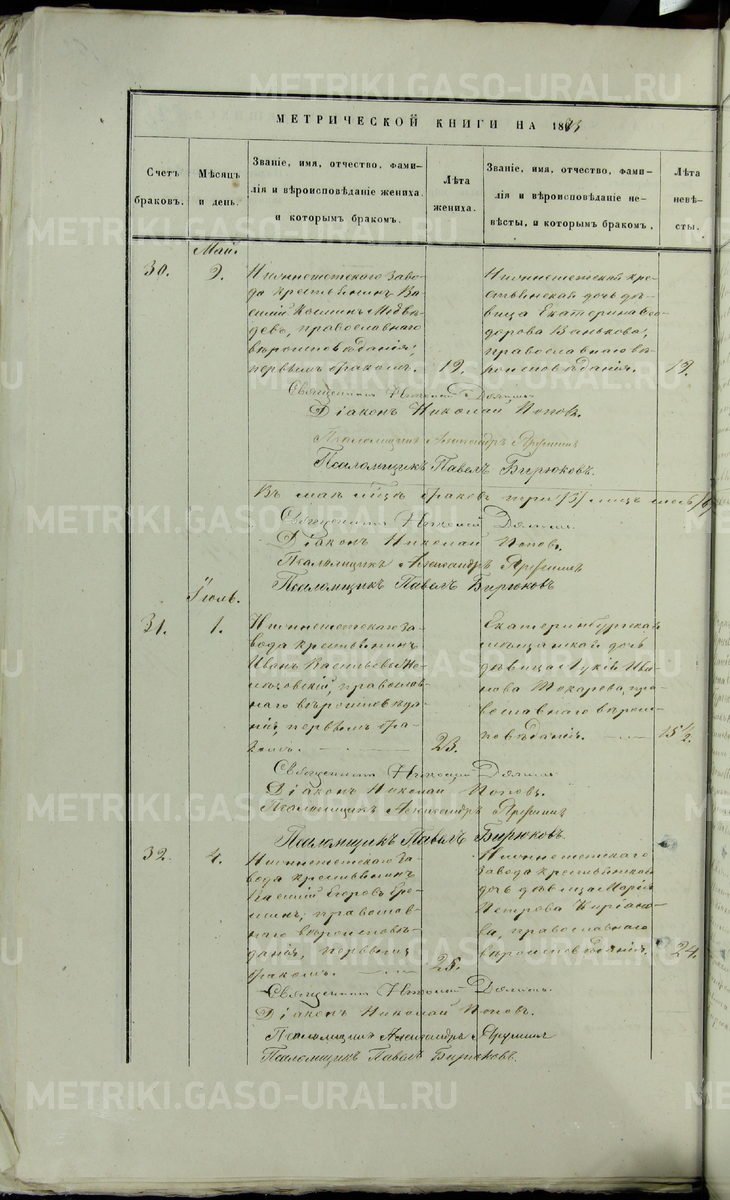 МЕТРИЧЕСКОЙ КНИГИ НА 18
Счетъ
браковъ.
Мѣсяцъ
и день.
Званіе, имя, отчество, фами-
лія и вѣроисповѣданіе жениха.
и которымъ бракомъ.
Лѣта
жениха.
Званіе, имя, отчество, фами-
лія и вѣроисповѣданіе не-
вѣсты, и которымъ бракомъ.
Лѣта
невѣ-
сты.
Май.
30.
2.
Нижнеисетскаго заво-
да крестьянинъ Ва-
силій Медвѣ-
девъ, православнаго
вѣроисповѣданія,
первымъ бракомъ.
19.
Нижнеисетская кре-
стьянская дочь дѣ-
вица Екатерина Ѳео-
дорова Ванькова,
православнаго вѣ-
роисповѣданія.
19.
Священникъ
Діаконъ Николай Поповъ.
Псаломщикъ Александръ
Псаломщикъ Павелъ Бирюковъ.
Въ маѣ м-цѣ браковъ три /3/ лицъ шесть /6/
Священникъ
Діаконъ Николай Поповъ.
Псаломщикъ Александръ
Псаломщикъ Павелъ Бирюковъ
31.
1.
Нижнеисетскаго за-
вода крестьянинъ
Иванъ Васильевъ
православ-
наго вѣроисповѣда-
нія, первымъ бра-
комъ.
23.
Екатеринбургская
мѣщанская дочь
дѣвица Лукія Ива-
нова Токарева, пра-
вославнаго вѣроис-
повѣданія.
15 1/2.
Священникъ
Діаконъ Николай Поповъ.
Псаломщикъ Александръ
Псаломщикъ Павелъ Бирюковъ.
32.
4.
Нижнеисетскаго за-
вода крестьянинъ
Егоровъ
православ-
наго вѣроисповѣ-
данія, первымъ
бракомъ.
25.
Нижнеисетскаго
завода крестьянская
дочь дѣвица Марія
Петрова
православнаго
вѣроисповѣданія.
24.
Священникъ
Діаконъ Николай Поповъ.
Псаломщикъ Александръ
Псаломщикъ Павелъ Бирюковъ.
METRIKI.GASO-URAL.RU